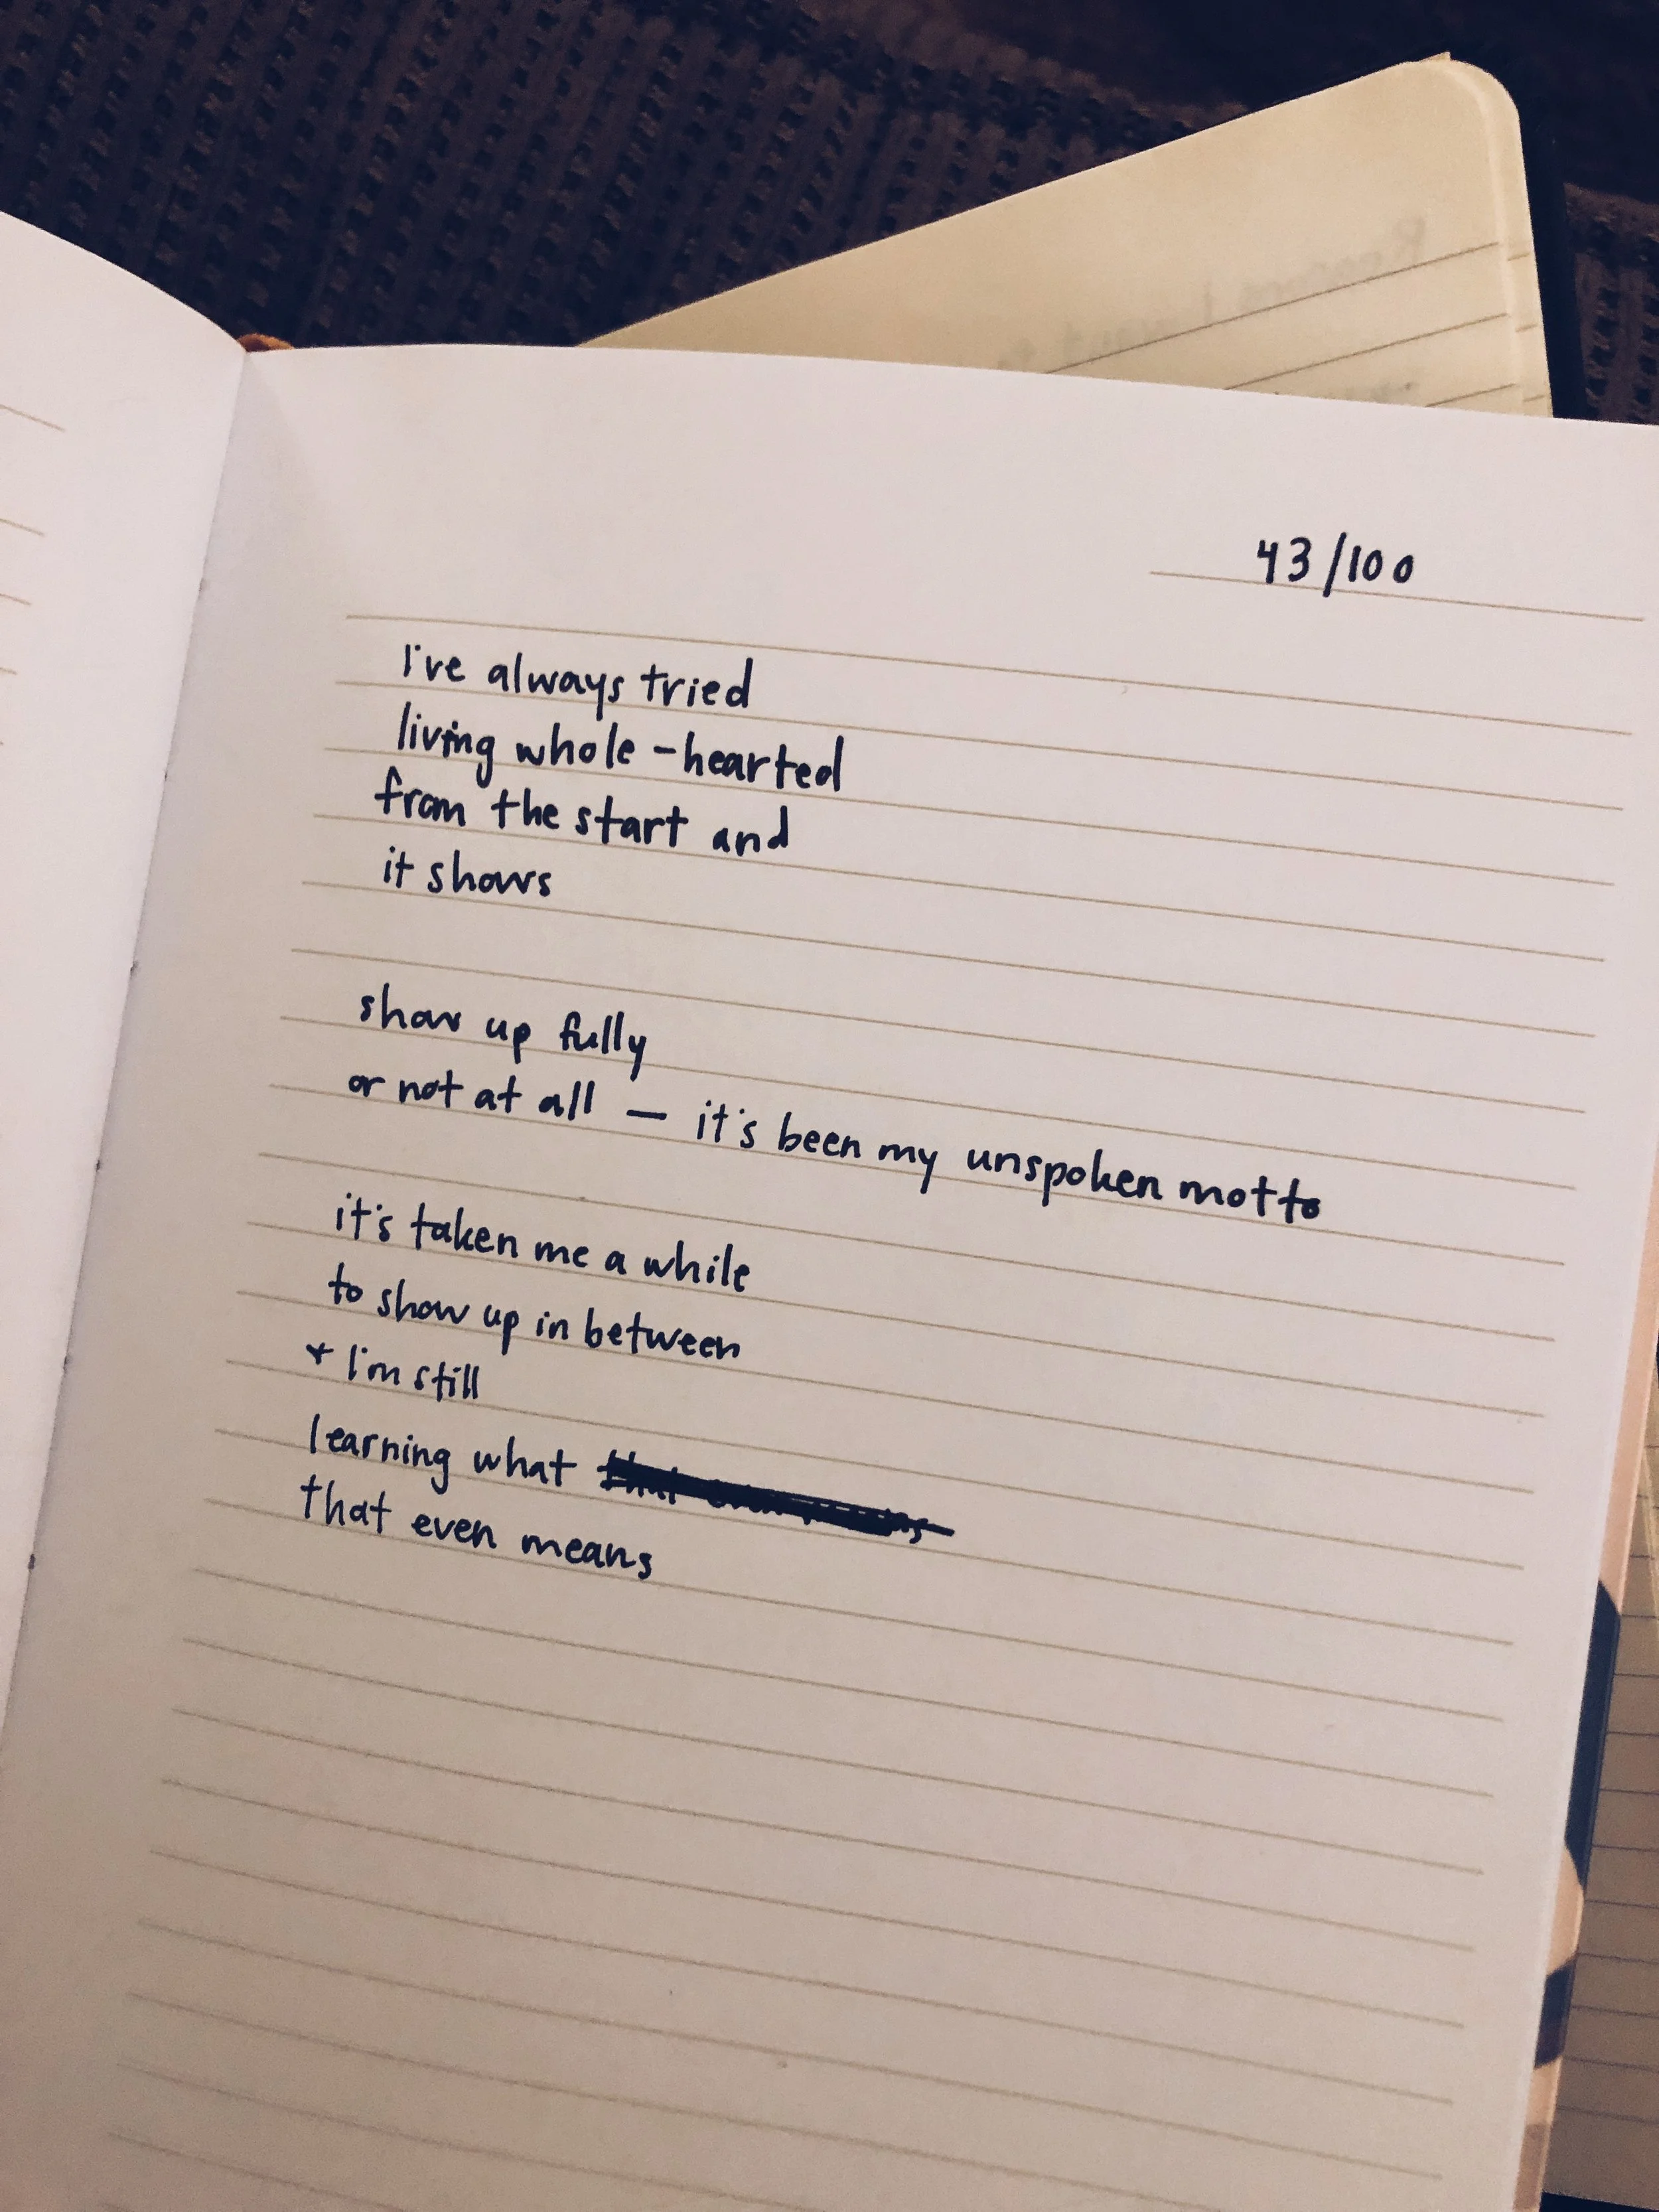 43/100
I've always tried
living whole-hearted
from the start and
it shows
show up fully
or not at all — it's been my unspoken motto
it's taken me a while
to show up in between
+ I'm still
learning what
that even means